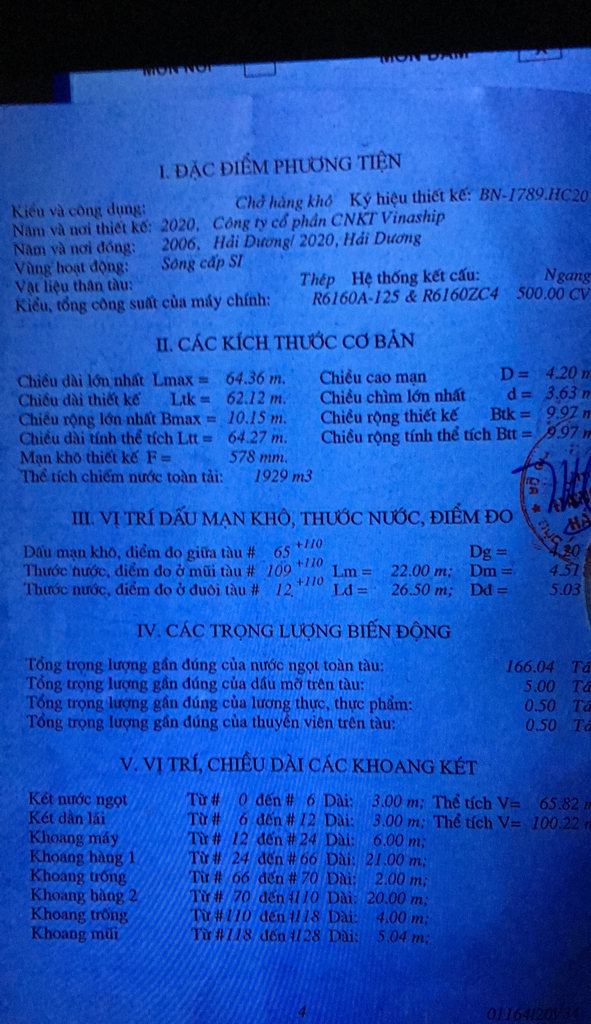 MỚN NƯỚC
I. ĐẶC ĐIỂM PHƯƠNG TIỆN
Kiểu và công dụng: Chở hàng khô Ký hiệu thiết kế: BN-1789.HC20
Năm và nơi thiết kế: 2020, Công ty cổ phần CNKT Vinaship
Năm và nơi đóng: 2006, Hải Dương/ 2020, Hải Dương
Vùng hoạt động: Sông cấp SI
Vật liệu thân tàu: Thép Hệ thống kết cấu: Ngang
Kiểu, tổng công suất của máy chính: R6160A-125 & R6160ZC4 500.00 CV
II. CÁC KÍCH THƯỚC CƠ BẢN
Chiều dài lớn nhất Lmax = 64.36 m. Chiều cao mạn D = 4.20 m
Chiều dài thiết kế Ltk = 62.12 m. Chiều chìm lớn nhất d = 3.63 m
Chiều rộng lớn nhất Bmax = 10.15 m. Chiều rộng thiết kế Btk = 9.97 m
Chiều dài tính thể tích Ltt = 64.27 m. Chiều rộng tính thể tích Btt = 9.97 m
Mạn khô thiết kế F = 578 mm.
Thể tích chiếm nước toàn tải: 1929 m3
III. VỊ TRÍ DẤU MẠN KHÔ, THƯỚC NƯỚC, ĐIỂM ĐO
Dấu mạn khô, điểm đo giữa tàu # 65 +110 Dg = 4.20
Thước nước, điểm đo ở mũi tàu # 109 +110 Lm = 22.00 m; Dm = 4.51
Thước nước, điểm đo ở đuôi tàu # 12 +110 Ld = 26.50 m; Dd = 5.03
IV. CÁC TRỌNG LƯỢNG BIẾN ĐỘNG
Tổng trọng lượng gần đúng của nước ngọt toàn tàu: 166.04 Tấ
Tổng trọng lượng gần đúng của dầu mỡ trên tàu: 5.00 Tấ
Tổng trọng lượng gần đúng của lương thực, thực phẩm: 0.50 Tấ
Tổng trọng lượng gần đúng của thuyền viên trên tàu: 0.50 Tấ
V. VỊ TRÍ, CHIỀU DÀI CÁC KHOANG KÉT
Két nước ngọt Từ # 0 đến # 6 Dài: 3.00 m; Thể tích V= 65.82 m
Két dằn lái Từ # 6 đến # 12 Dài: 3.00 m; Thể tích V= 100.22 m
Khoang máy Từ # 12 đến # 24 Dài: 6.00 m;
Khoang hàng 1 Từ # 24 đến # 66 Dài: 21.00 m;
Khoang trống Từ # 66 đến # 70 Dài: 2.00 m;
Khoang hàng 2 Từ # 70 đến #110 Dài: 20.00 m;
Khoang trống Từ #110 đến #118 Dài: 4.00 m;
Khoang mũi Từ #118 đến #128 Dài: 5.04 m;
4